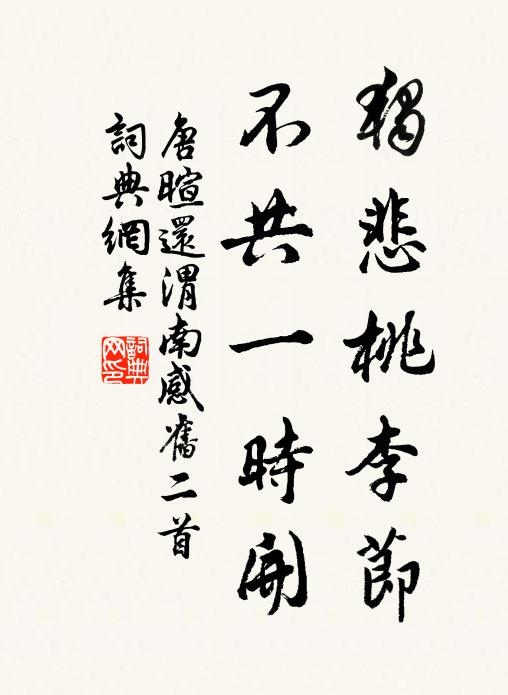 獨悲桃李節
不共一時開
唐暄還渭南感舊二首
詞典網集
詞典網印